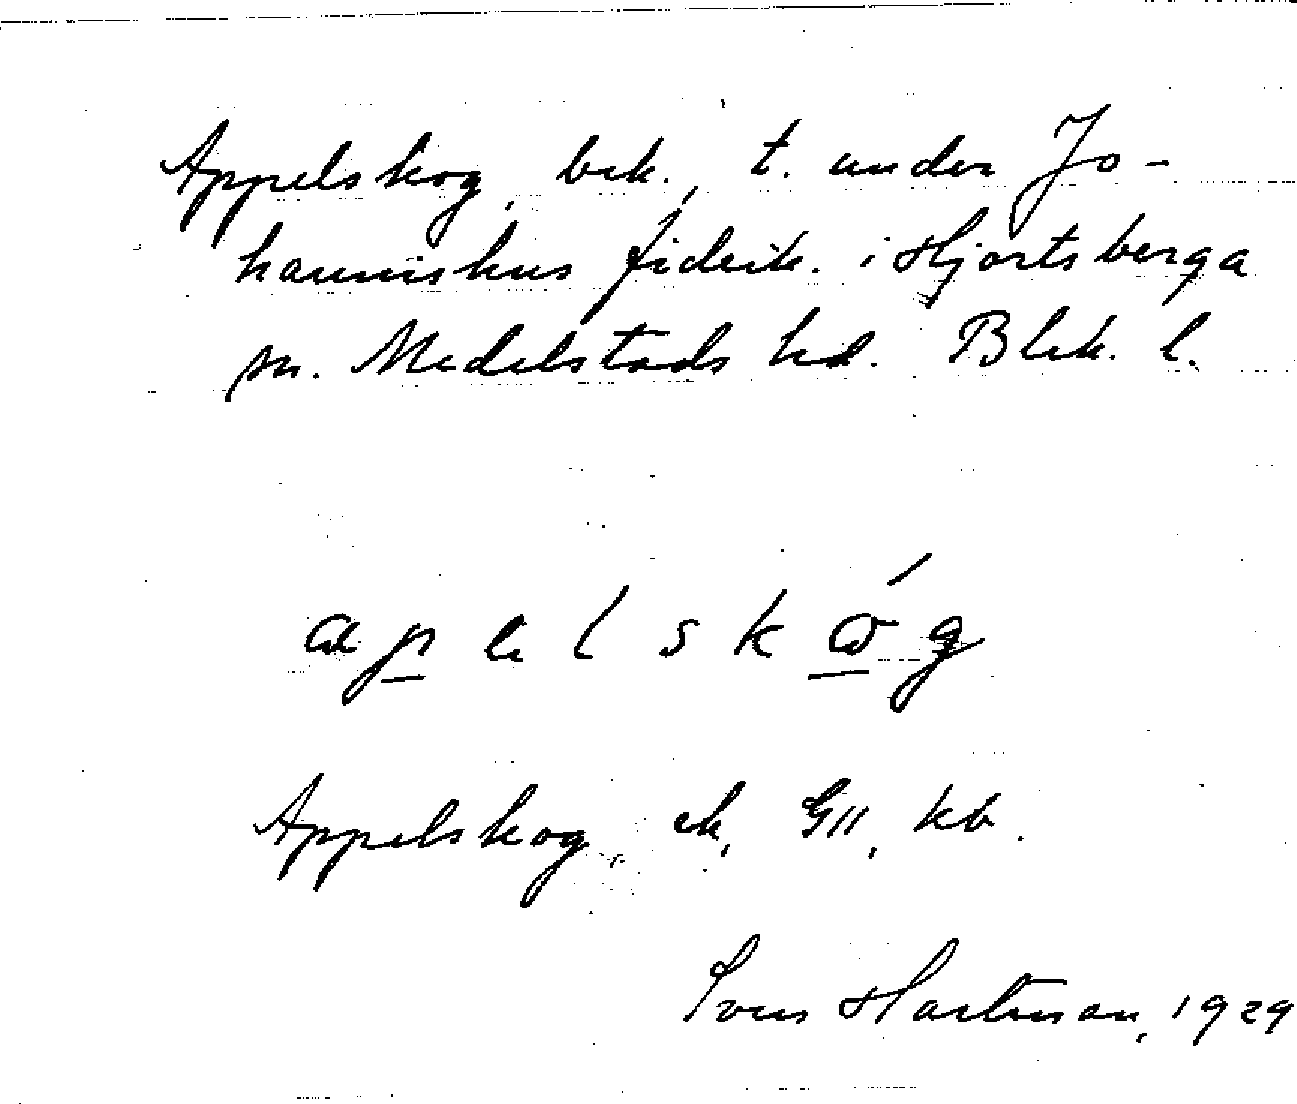 Appelskog, bek., t. under Jo-
hannishus fideik. i Hjortsberga
sn. Medelstads hd. Blek. l.
apelskóg
Appelskog ek, GII, kb.
Sven Hartman, 1929